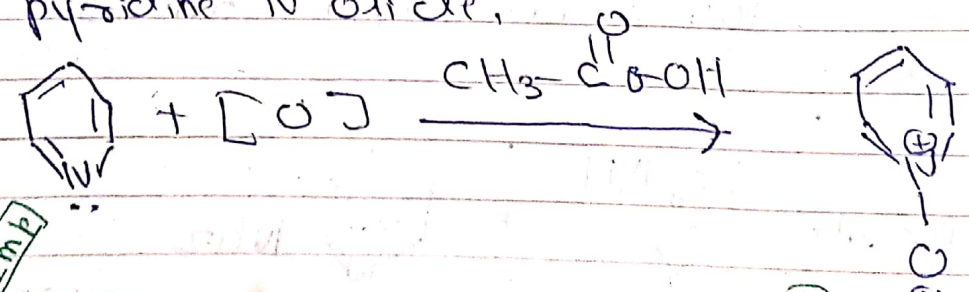 pyridine N oxide.
O
CH3-C-O-OH
N + [O] →
⊕N
O
Imp